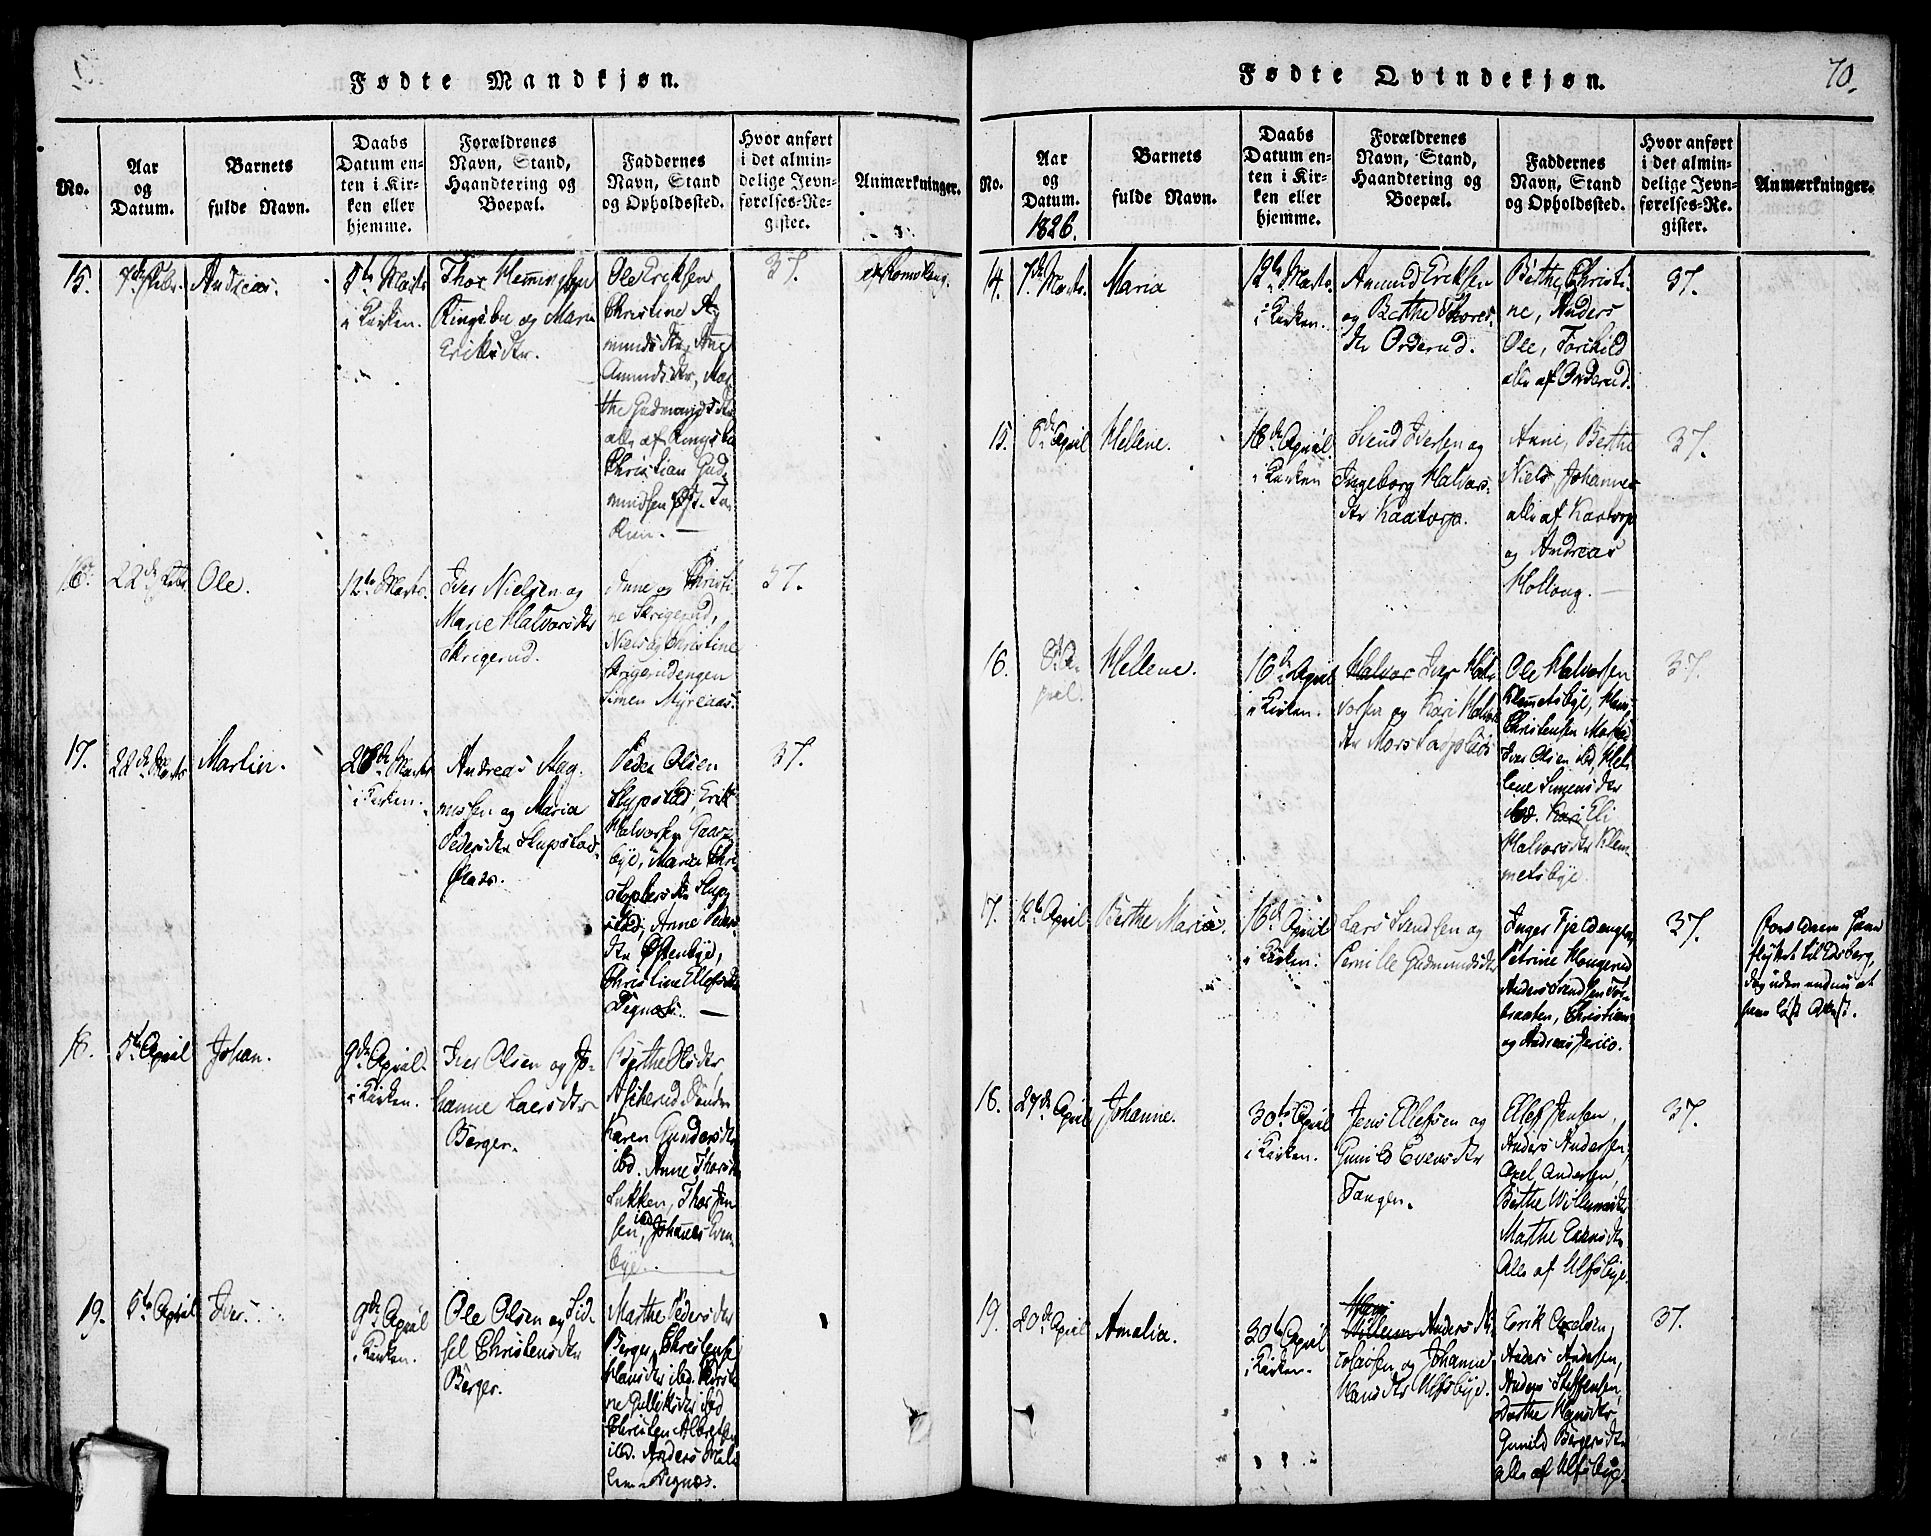 Fødte Mandkjøn.
No.
Aar
og
Datum.
Barnets
fulde Navn.
Daabs
Datum en-
ten i Kir-
ken eller
hjemme.
Forældrenes
Navn, Stand,
Haandtering og
Boepæl.
Faddernes
Navn, Stand
og Opholdssted.
Hvor anført
i det almin-
delige Jevn-
førelses-Re-
gister.
Anmærkninger.
15.
7de Febr.
Andreas.
5te Marts
i Kirken.
Thor
Ringsbu og Maria
Eriksdtr.
Ole Eriksen
Christine A
mundsdtr, Ane
Amundsdtr, Mar
the Gudmundsdtr
alle af Ringsbu
Christian Gud
mundsen
37.
16.
22de Febr
Ole.
12te Marts.
Iver Nielsen og
Marie Halvorsdtr
Skrigerud.
Anne og Christi
ne Skrigerud,
Niels og Christine
Skrigerudengen
Simen Myraas.
37.
17.
22de Marts
Martin.
26de Marts
i Kirken.
Andreas Mag
nussen og Maria
Pedersdtr Slupstad
Plads.
Peder Olsen
Slupstad, Erik
Halvorsen Gaars
bye, Maria Chri
stophersdtr Slup
stad, Anne Peders
dtr Østenbye,
Christine Ellefsdtr
Tegnæs.
37.
18.
5te April
Johan.
9de April
i Kirken.
Iver Olsen og Jo-
hanne Larsdtr
Berger.
Berthe Olsdtr
Karen Gundersdtr
ibd. Anne Thorsdtr
Løkken, Thor Jen
sen ibd, Johannes Even
bye.
19.
5te April
Iver.
9de April
i Kirken.
Ole Olsen og Sid-
sel Christensdtr
Berger.
Marthe Pedersdtr
Berger, Christense
Hansdtr ibd. Kirsti
ne Gulliksdtr ibd
Christen Albretsen
ibd. Anders
Tegnæs.
Fødte Qvindekjøn.
70.
No.
Aar
og
Datum.
1826.
Barnets
fulde Navn.
Daabs
Datum en-
ten i Kir-
ken eller
hjemme.
Forældrenes
Navn, Stand,
Haandtering og
Boepæl.
Faddernes
Navn, Stand
og Opholdssted.
Hvor anført
i det almin-
delige Jevn-
førelses-Re-
gister.
Anmærkninger.
14.
7de Marts.
Maria
12te Marts.
i Kirken.
Amund Eriksen
og Berthe Thores-
dtr Orderud.
Berthe, Christi-
ne, Anders
Ole, Torchild
alle af Orderud.
37.
15.
April
Helene.
16de April.
i Kirken
Svend Iversen og
Ingeborg Halvors-
dtr Kaatorp.
Anne, Berthe
Niels, Johannes
alle af Kaatorp
og Andreas
Holtoug.
37.
16.
Helene.
16de April
i Kirken.
Halvor Iver Hal
vorsen og Kari Halvors
dtr Morstadplads
Ole Halvorsen
Klemetsbye, Hans
Christensen
Iver Olsen ibd, Hel
lene Simensdtr
ibd. Kari Eli
Halvorsdtr Klem-
metsbye.
37.
17.
12te April
Berthe Maria.
16de April
i Kirken.
Lars Svendsen og
Pernille Gudmundsdtr
Inger Fjeldengen,
Petrine Haugerud
Anders Svendsen Tor-
braaten, Christian
og Andreas Jerico.
37.
Forældrene have
flyttet til Edsberg,
dog uden endnu at
have løst Attest.
18.
27de April
Johanne.
30te April
i Kirken.
Jens Ellefsen og
Gunild Evensdtr
Tangen.
Ellef Jensen,
Anders Andersen,
Axel Andersen,
Berthe Willumsdtr
Marthe Evensdtr
Alle af Ulfsbye.
37.
19.
20de April
Amalia.
30te April
i Kirken.
Willum Anders
og Johanne
Hansdtr Ulfsbye.
Erik Axelsen,
Anders Andersen,
Anders Steffensen,
Dorthe Hansdtr,
Gunild Børgersdtr
alle af Ulfsbye.
37.